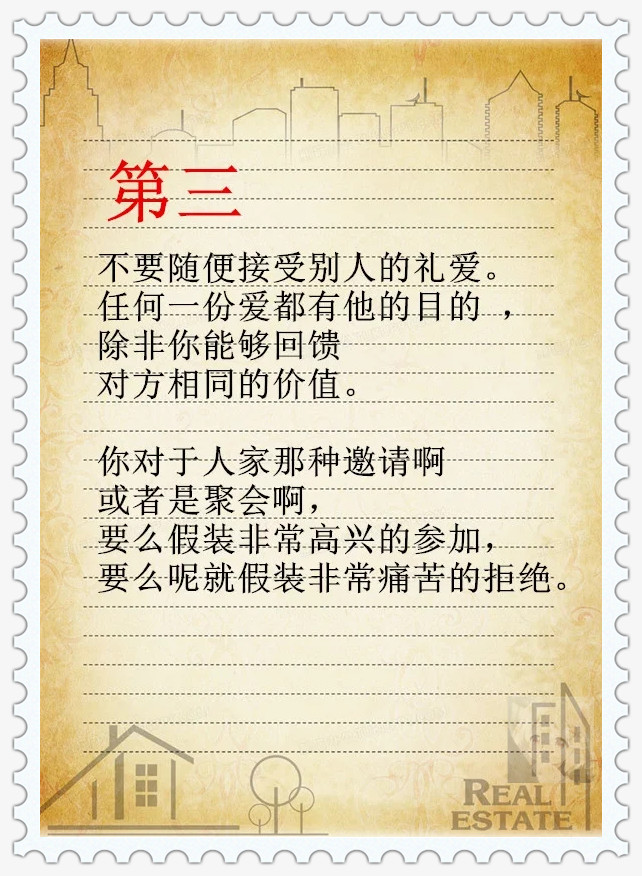 第三
不要随便接受别人的礼爱。
任何一份爱都有他的目的 ，
除非你能够回馈
对方相同的价值。
你对于人家那种邀请啊
或者是聚会啊，
要么假装非常高兴的参加，
要么呢就假装非常痛苦的拒绝。
REAL
ESTATE